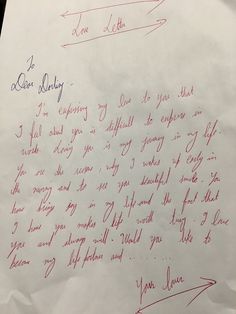 Love Letter
To
Dear Darling.
I'm expressing my love to you that
I feel about you is difficult to express in
words. Loving you is my journey in my life.
You are the reason, why I wakes up early in
the morning and to see you beautiful smile. You
have brings joy in my life and the fact that
I have you makes life worth living. I love
you and always will. Would you like to
become my life partner and ........
Your lover